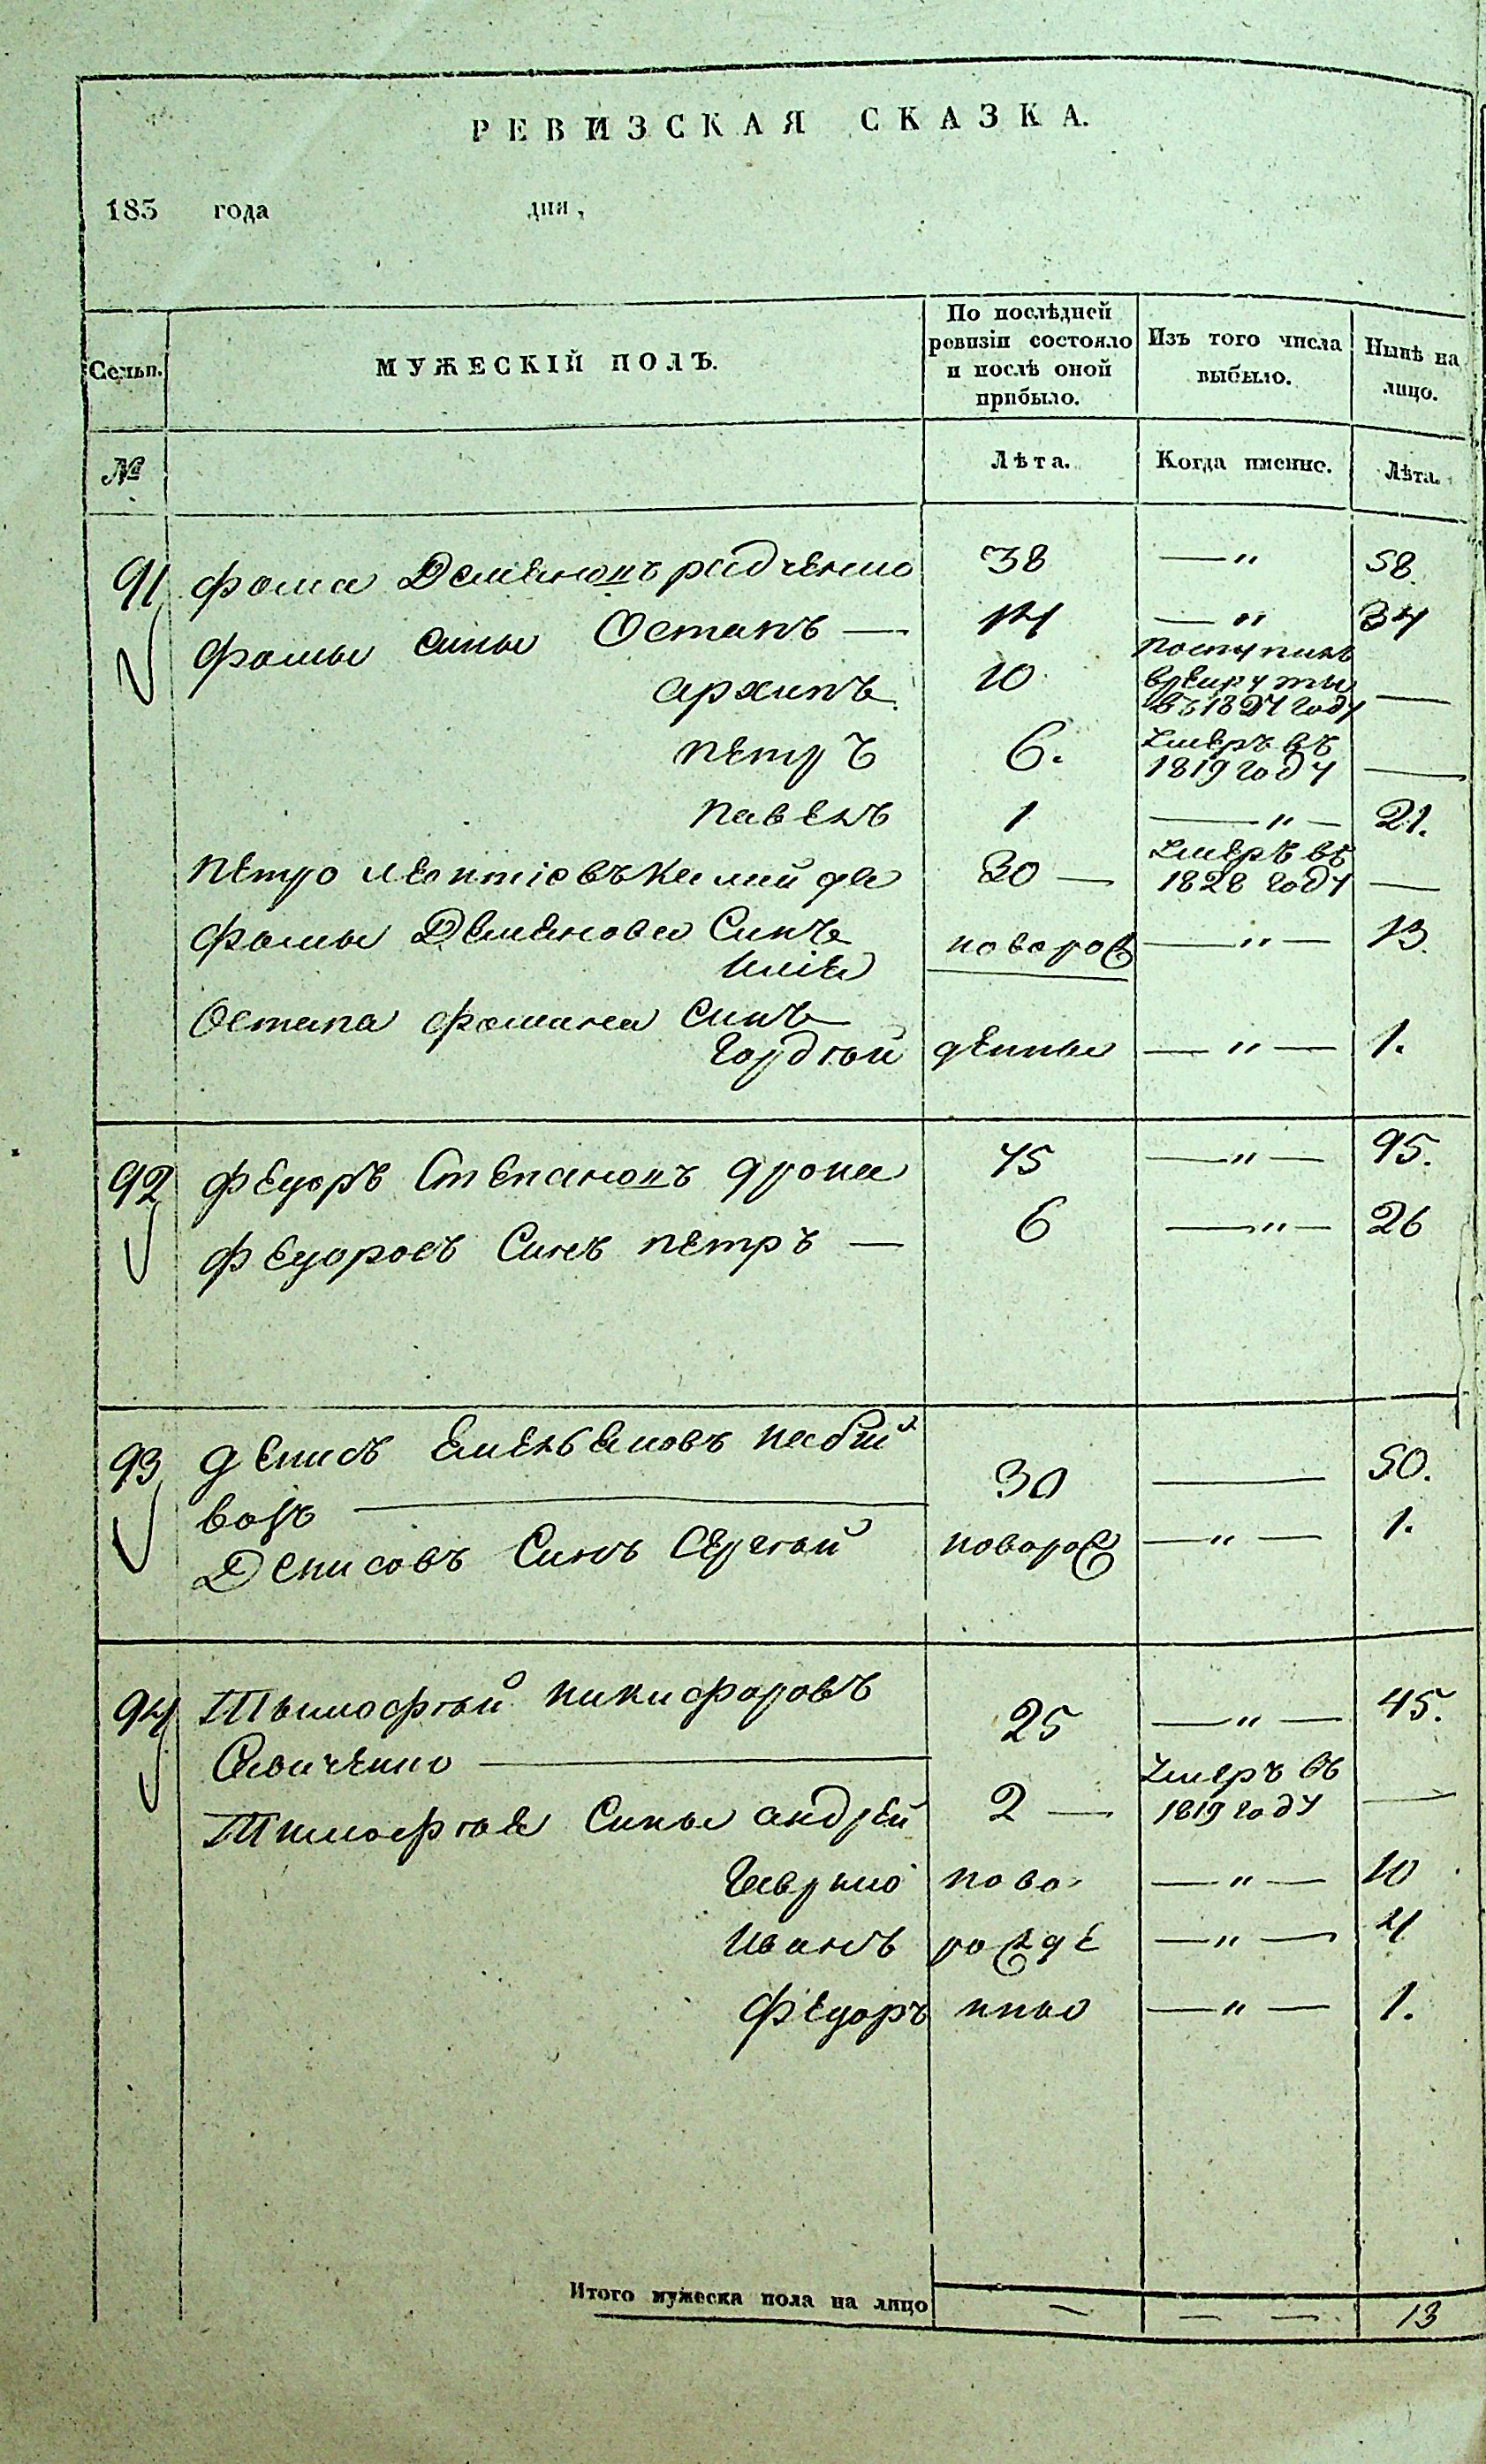 РЕВИЗСКАЯ СКАЗКА.
183 года дня,
Семьи.
МУЖЕСКІЙ ПОЛЪ.
По послѣдней ревизіи состояло и послѣ оной прибыло.
Изъ того числа выбыло.
Нынѣ на лицо.
№ Лѣта. Когда именно. Лѣта.
91 Фома Демяновъ радченко 38 —„ 58.
Фомы сины Остапъ — 14 —„ 34
архипъ 10 поступилъ в рекруты въ 1824 году —
петръ 6. Умеръ въ 1819 году —
павелъ 1 —„— 21.
петро леонтіовъ 30 — Умеръ въ 1828 году —
Фомы Демянова Синъ новорож —„— 13.
Илія
Остапа Фомина Синъ
Гордѣй денны —„— 1.
92 Федоръ Степановъ 45 —„— 95.
Федоровъ Синъ петръ — 6 —„— 26
93 Денисъ Емельяновъ 30 — 50.
Денисовъ Синъ Сергѣй новорож —„— 1.
94 Тимофѣй никифоровъ 25 —„— 45.
Савченко —
Тимофѣя Сины андрей 2 — Умеръ въ 1819 году —
Гаврило ново —„— 10
Иванъ рожде —„— 4
Федоръ нны —„— 1.
Итого мужеска пола на лицо — — — 13